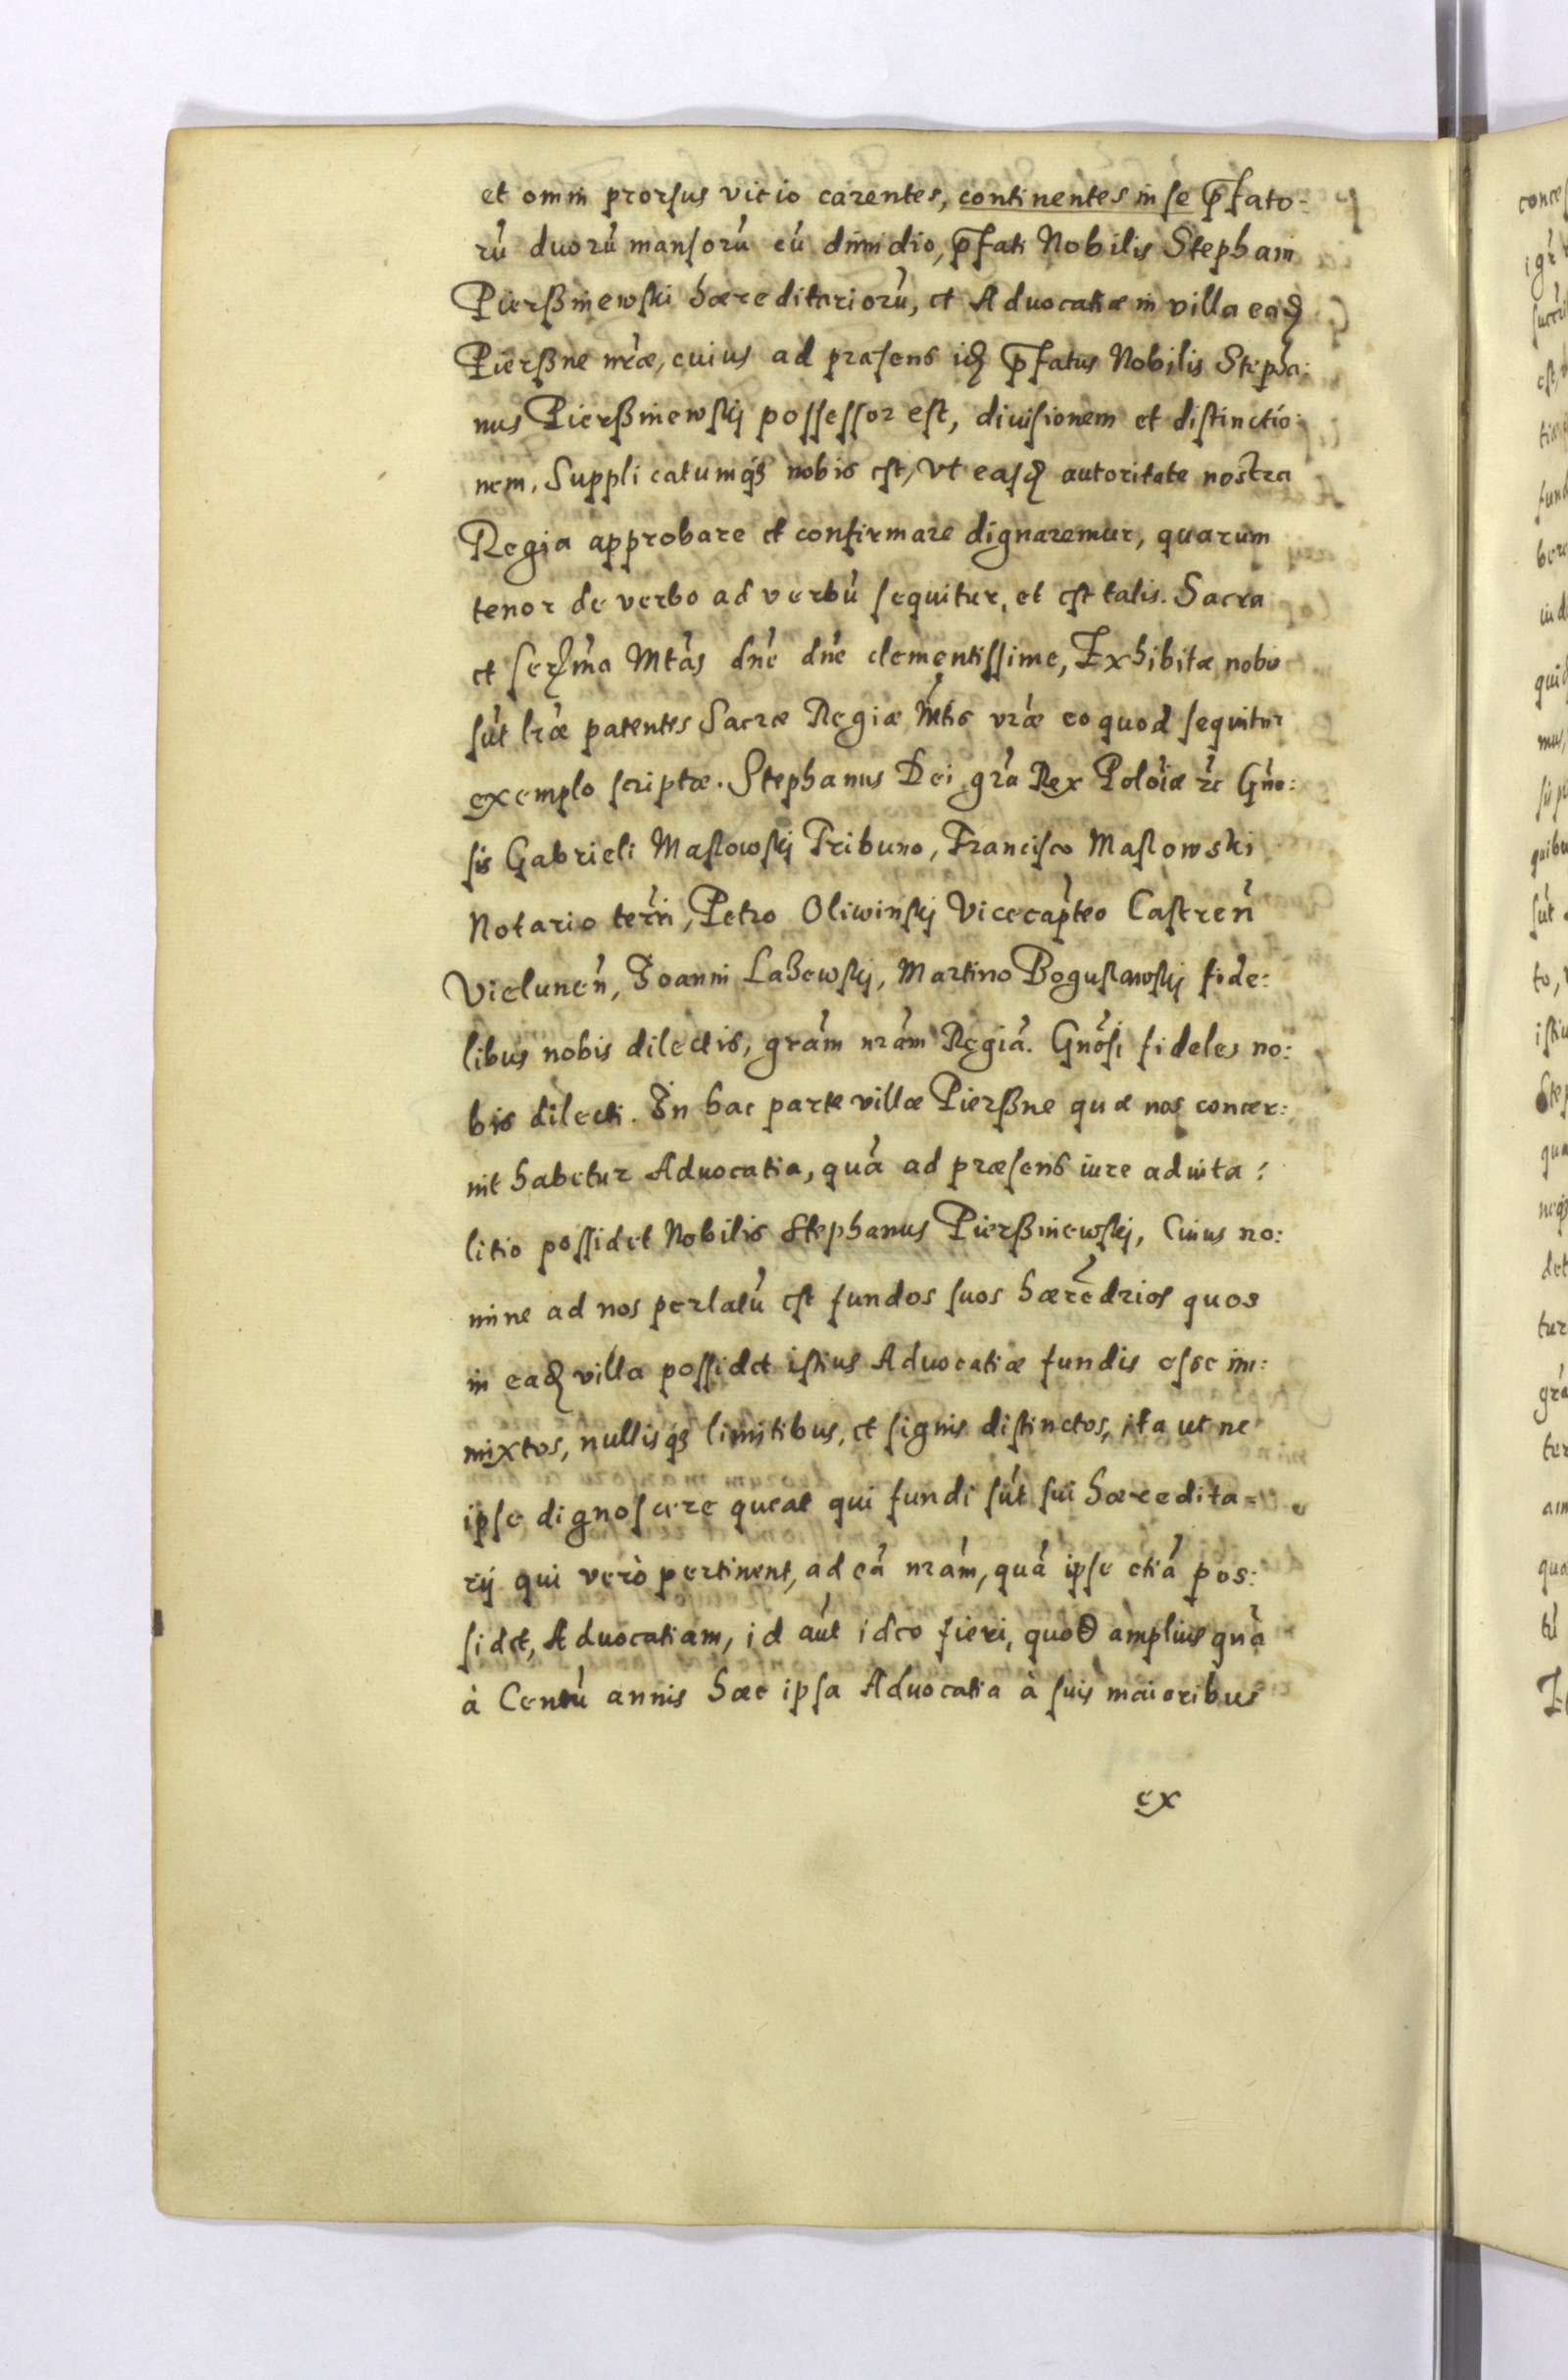 et omni prorſus vicio carentes, continentes in ſe p̄fato-
rú duorú manſorú cú dimidio, p̄fati Nobilis Stephani
Pierßniewſki hæreditariorú, et Advocatiæ in villa eaꝺ
Pierßne nr̃æ, cuius ad præſens iꝺ p̄fatus Nobilis Stepha:
nus Pierßniewſkj poſſeſſor eſt, diuiſionem et diſtinctio:
nem. Supplicatumqꝫ nobis eſt, Vt eaſꝺ autoritate nostra
Regia approbare et confirmare dignaremur, quarum
tenor de verbo ad verbú ſequitur, et eſt talis. Sacra
et ſerma Mtás dńe dńe clementiſſime, Exhibitæ nobis
ſút lr̃æ patentes Sacræ Regiæ Mtis vr̃æ eo quod ſequitur
exemplo ſcriptæ. Stephanus Dei gr̃a Rex Polóiæ ꝛc Gńo:
ſis Gabrieli Maſlowſkj Tribuno, Franciſco Maſlowski
Notario terŕn, Petro Oliwinſkj Vicecapteo Caſtreń
Vieluneń, Joanni Laßowſkj, Martino Boguſlawſkj fide:
libus nobis dilectis, grám nrám Regiá. Gnóſi fideles no:
bis dilecti. In hac parte villæ Pierßne quæ nos concer:
nit habetur Advocatia, quá ad præſens iure aduita:
litio poſſidet Nobilis Stephanus Pierßniewſkj, Cuius no:
mine ad nos perlatú eſt fundos ſuos hæredrios quos
in eaꝺ villa poſſidet iſtius Advocatiæ fundis eſse im:
mixtos, nullisqꝫ limitibus, et ſignis diſtinctos, ita ut ne
ipſe dignoſcere queat qui fundi ſút ſui hæredita-
rij qui verò pertinent, ad eá nrám, quá ipſe etiá pos:
ſidet, Advocatiam, id aút ideo fieri, quod amplius quá
à Centú annis hæc ipſa Advocatia à ſuis maioribus
ex